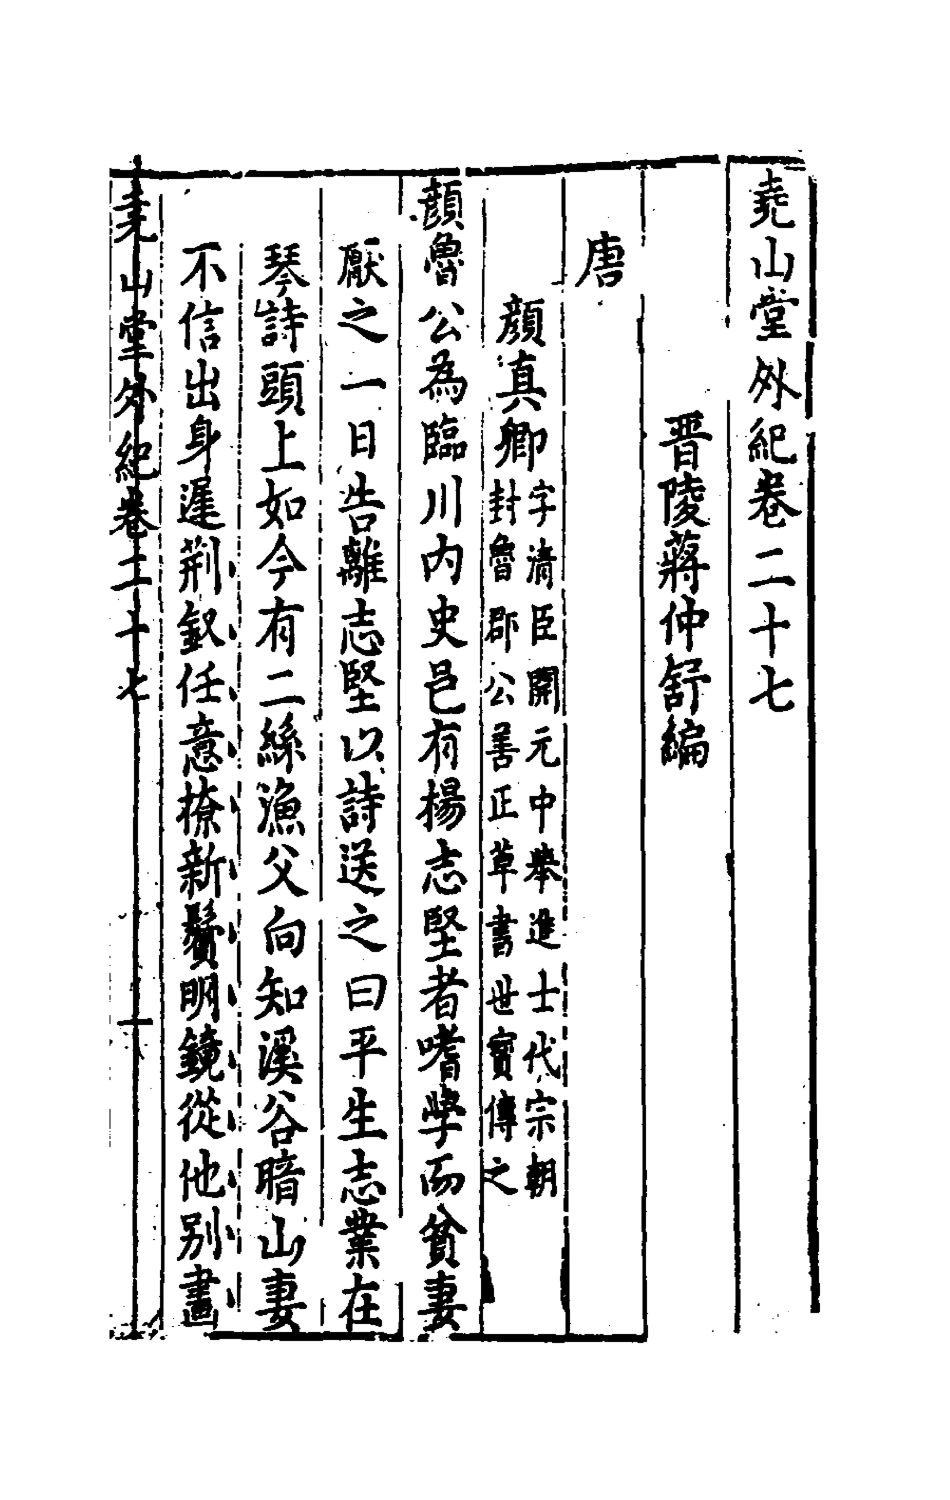 堯山堂外紀卷二十七
晋陵蔣仲舒編
唐
顏真卿
字清臣開元中舉進士代宗朝
封魯郡公善正草書世寳傳之
顏魯公為臨川内史邑有楊志堅者嗜學而貧妻
厭之一日告離志堅以詩送之曰平生志業在
琴詩頭上如今有二絲漁父向知溪谷暗山妻
不信出身遲荆釵任意撩新鬢明鏡從他别畫
堯山堂外紀卷二十七
一